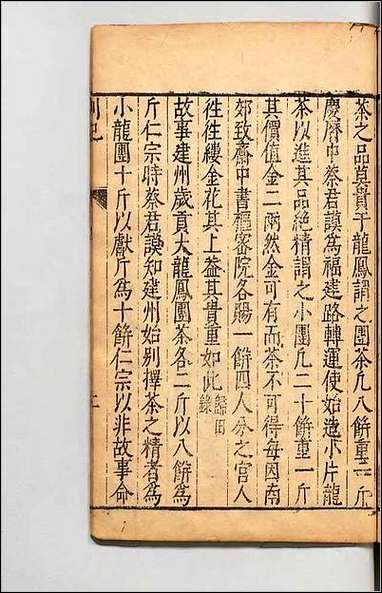 茶之品莫貴于龍鳳謂之團茶凡八餅重一斤
慶曆中蔡君謨為福建路轉運使始造小片龍
茶以進其品絕精謂之小團凡二十餅重一斤
其價值金二兩然金可有而茶不可得每因南
郊致齋中書樞密院各賜一餅四人分之官人
往往縷金花其上蓋其貴重如此歸田錄
故事建州歲貢大龍鳳團茶各二斤以八餅為
斤仁宗時蔡君謨知建州始別擇茶之精者為
小龍團十斤以獻斤為十餅仁宗以非故事命